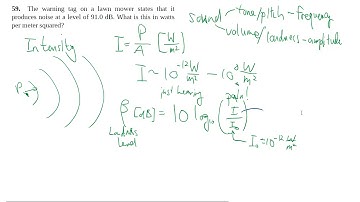 59. The warning tag on a lawn mower states that it
produces noise at a level of 91.0 dB. What is this in watts
per meter squared?
sound - tone/pitch - frequency
volume/loudness - amplitude
Intensity
I = P/A [W/m²]
P
I ~ 10⁻¹² W/m² - 10 W/m²
just hearing
pain!
β [dB] = 10 log₁₀ (I/I₀)
Loudness
level
I₀ = 10⁻¹² W/m²